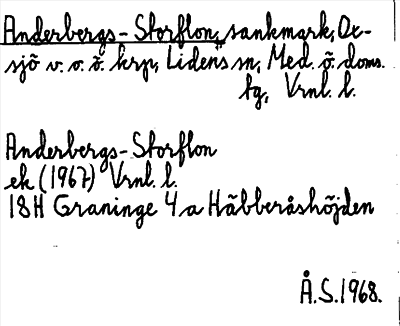 Anderbergs-Storflon, sankmark, Ox-
sjö v. o. ö. krp, Lidens sn, Med. ö. doms.
tg, Vrnl. l.
Anderbergs-Storflon
ek (1967) Vrnl. l.
18H Graninge 4 a Häbberåshöjden
Å.S. 1968.